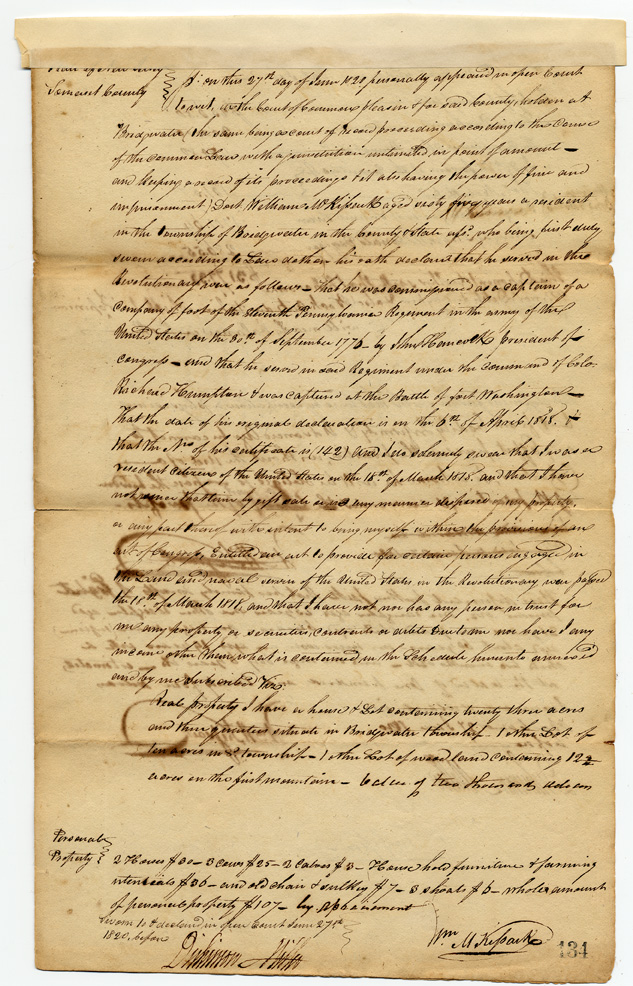 Somerset County
ss: on this 27th day of June 1820 personally appeared in open Court
to wit, at the Court of Common pleas in & for said County, holden at
Bridgwater (the same being a court of record proceeding according to the Course
of the Common Law, with a jurisdiction unlimited, in point of amount –
and keeping a record of its proceedings & it also having the power of fine and
imprisonment) Doct. William McKissack aged sixty five years a resident
in the township of Bridgwater in the County & State afsd. who being first duly
sworn according to Law doth on his oath declare that he served in the
Revolutionary war as follows – that he was commissioned as a captain of a
company of foot of the Eleventh Pennsylvania Regiment in the army of the
United States on the 30th of September 1776 – by John Hancock President of
Congress – and that he served in said Regiment under the command of Colo.
Richard Humpton & was captured at the Battle of fort Washington –
That the date of his original declaration is on the 6th of April 1818. &
that the No of his certificate is (142) And I do solemnly swear that I was a
resident Citizen of the United States on the 18th of March 1818. and that I have
not since that time by gift sale or in any manner disposed of my property,
or any part thereof with intent to bring myself within the provisions of an
act of Congress, Entitled an act to provide for certain persons engaged in
the Land and naval service of the United States in the Revolutionary war passed
the 18th of March 1818 and that I have not nor has any person in trust for
me any property or securities, contracts or debts due to me nor have I any
income other than what is contained in the Schedule hereunto annexed
and by me subscribed Viz
Real property I have a house & Lot containing twenty three acres
and three quarters situate in Bridgwater township – 1 other Lot of
ten acres in township – 1 other Lot of wood land containing 12 3/4
acres on the first mountain – value of two thousand dolars
Personal
Property
2 Horses $30 – 3 cows $25 – 2 Calves $3 – House hold furniture & farming
utensials $36 – and old chair & sulkey $7 – 3 shoats $6 – whole amount
of personal property $107 – by appraisement
Sworn to & declared in open Court June 27th
1820, before
Wm McKissack
134